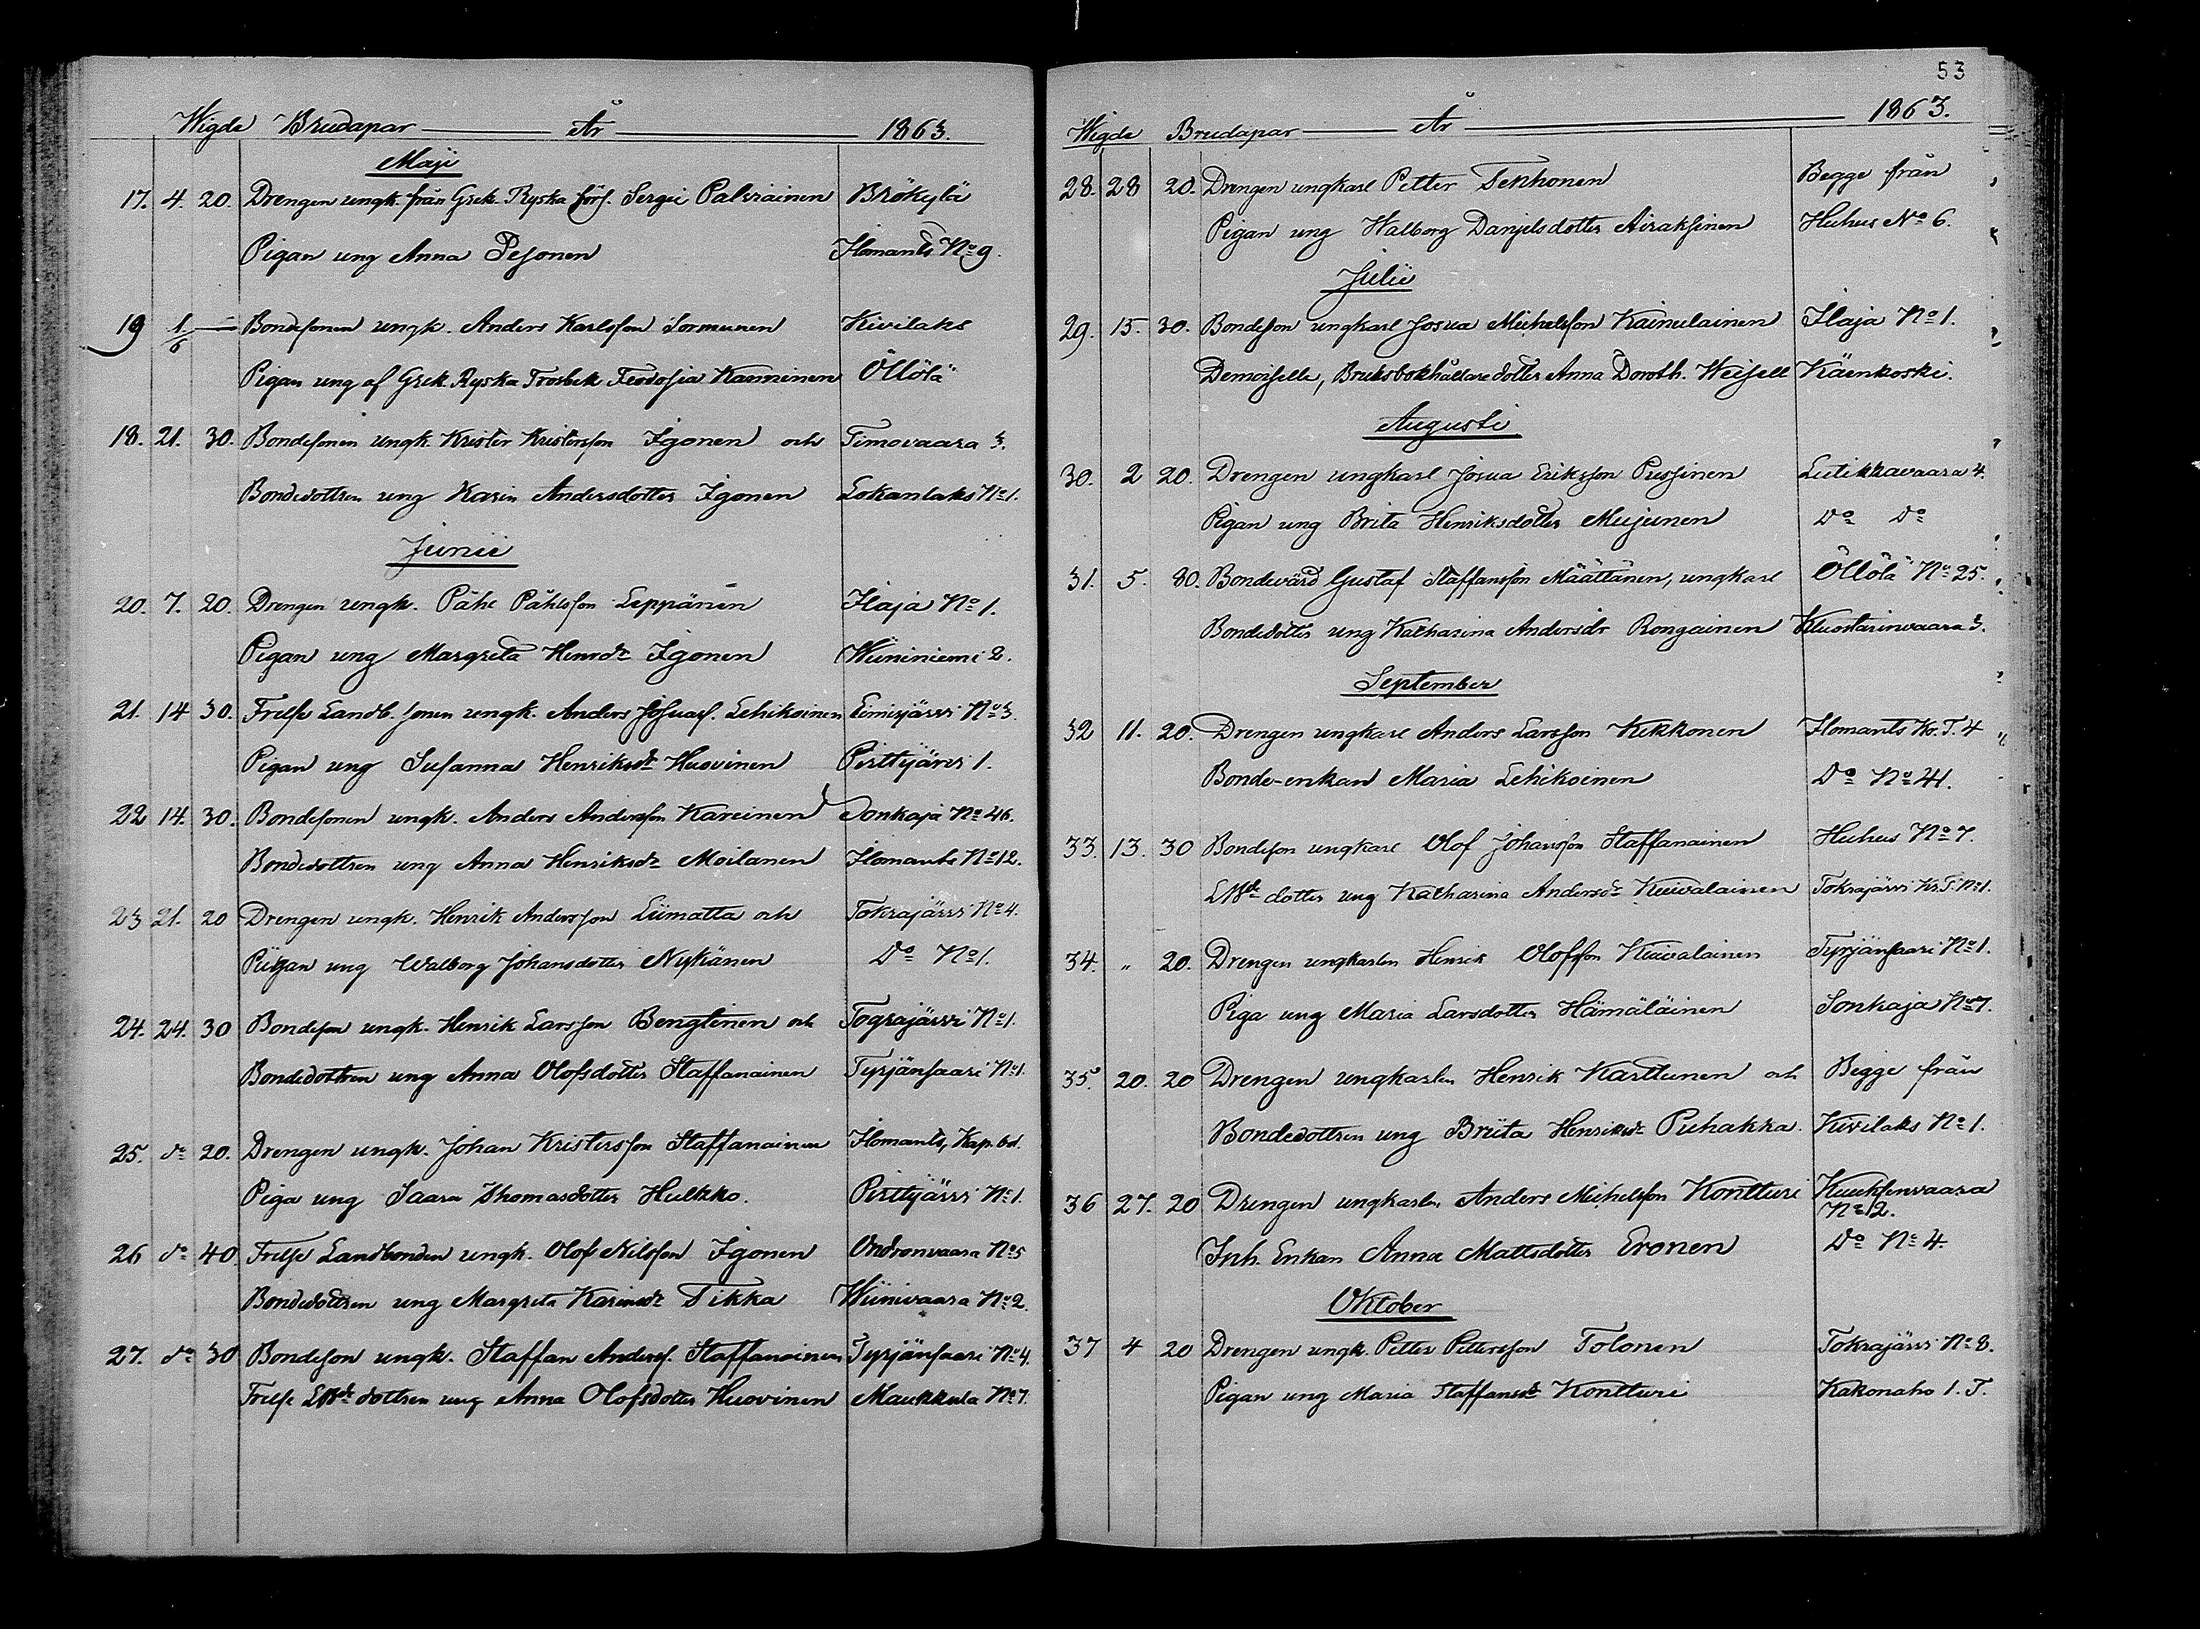 Wigde Brudapar År 1863.
Maji
17. 4. 20. Drengen ungk. från Grek. Ryska förs. Sergei Palviainen Brökylä
Pigan ung Anna Pesonen Ilomants No 9.
19 1/6 — Bondesonen ungk. Anders Karlsson Sormunen Kivilaks
Pigan ung af Grek. Ryska Trosbek. Feodosia Karninen Öllölä
18. 21. 30. Bondesonen ungk. Krister Kristersson Igonen och Timovaara 3.
Bondedottren ung Karin Andersdotter Igonen Lokanlaks No 1.
Junii
20. 7. 20. Drengen ungk. Påhl Påhlsson Leppänen Ilaja No 1.
Pigan ung Margreta Henrdr Igonen Wiininiemi 2.
21. 14 30. Frelse Landb. sonen ungk. Anders Josuas. Lehikoinen Eimisjärvi No 3.
Pigan ung Susanna Henriksdr Huovinen Pirttijärvi 1.
22 14. 30. Bondesonen ungk. Anders Andersson Kareinen Sonkaja No 46.
Bondedottren ung Anna Henriksdr Moilanen Ilomants No 12.
23 21. 20 Drengen ungk. Henrik Andersson Liimatta och Tokrajärvi No 4.
Piigan ung Walborg Johansdotter Nykänen Do No 1.
24. 24. 30 Bondeson ungk. Henrik Larsson Bengtinen och Tograjärvi No 1.
Bondedottren ung Anna Olofsdotter Staffanainen Tyrjänsaari No 1.
25. do 20. Drengen ungk. Johan Kristersson Staffanainen Ilomants, Kap. bol.
Piga ung Saara Thomasdotter Hulkko. Pirttijärvi No 1.
26 do 40. Frelse Landbonden ungk. Olof Nilsson Igonen Ondronvaara No 5
Bondedottren ung Margreta Karinsdr Tikka Wiinivaara No 2.
27. do 30 Bondeson ungk. Staffan Anderss. Staffanainen Tyrjänsaari No 4.
Frelse LBde dottren ung Anna Olofsdotter Huovinen Maukkula No 7.
53
Wigde Brudapar År 1863.
28. 28 20. Drengen ungkarl Petter Tenhonen Begge från
Pigan ung Walborg Danjelsdotter Airaksinen Huhus No 6.
Julii
29. 15. 30. Bondeson ungkarl Josua Michelsson Kainulainen Ilaja No 1.
Demoiselle, Bruksbokhållare dotter Anna Doroth. Weisell Käenkoski.
Augusti
30. 2 20. Drengen ungkarl Josua Eriksson Pussinen Lutikkavaara 4.
Pigan ung Brita Henriksdotter Mujunen Do Do
31. 5. 80. Bondevärd Gustaf Staffansson Määttänen, ungkarl Öllölä No 25.
Bondedotter ung Katharina Andersdr Rongainen Kluostarinvaara 3.
September
32 11. 20. Drengen ungkarl Anders Larsson Kekkonen Ilomants Kr. T. 4
Bonde-enkan Maria Lehikoinen Do No 41.
33. 13. 30 Bondeson ungkarl Olof Johansson Staffanainen Huhus No 7.
LBde dotter ung Katharina Andersdr Kuivalainen Tokrajärvi Kr. T. No 1.
34. " 20. Drengen ungkarlen Henrik Olofsson Kuivalainen Tyrjänsaari No 1.
Piga ung Maria Larsdotter Hämäläinen Sonkaja No 7.
35. 20. 20 Drengen ungkarlen Henrik Karttunen och Begge från
Bondedottren ung Briita Henriksdr Puhakka. Kivilaks No 1.
36 27. 20 Drengen ungkarlen Anders Michelsson Kontturi Kuuksenvaara
No 12.
Inh. Enkan Anna Mattsdotter Eronen Do No 4.
Oktober
37 4 20 Drengen ungk. Petter Pettersson Tolonen Tokrajärvi No 8.
Pigan ung Maria Staffansdr Kontturi Kakonaho 1. T.